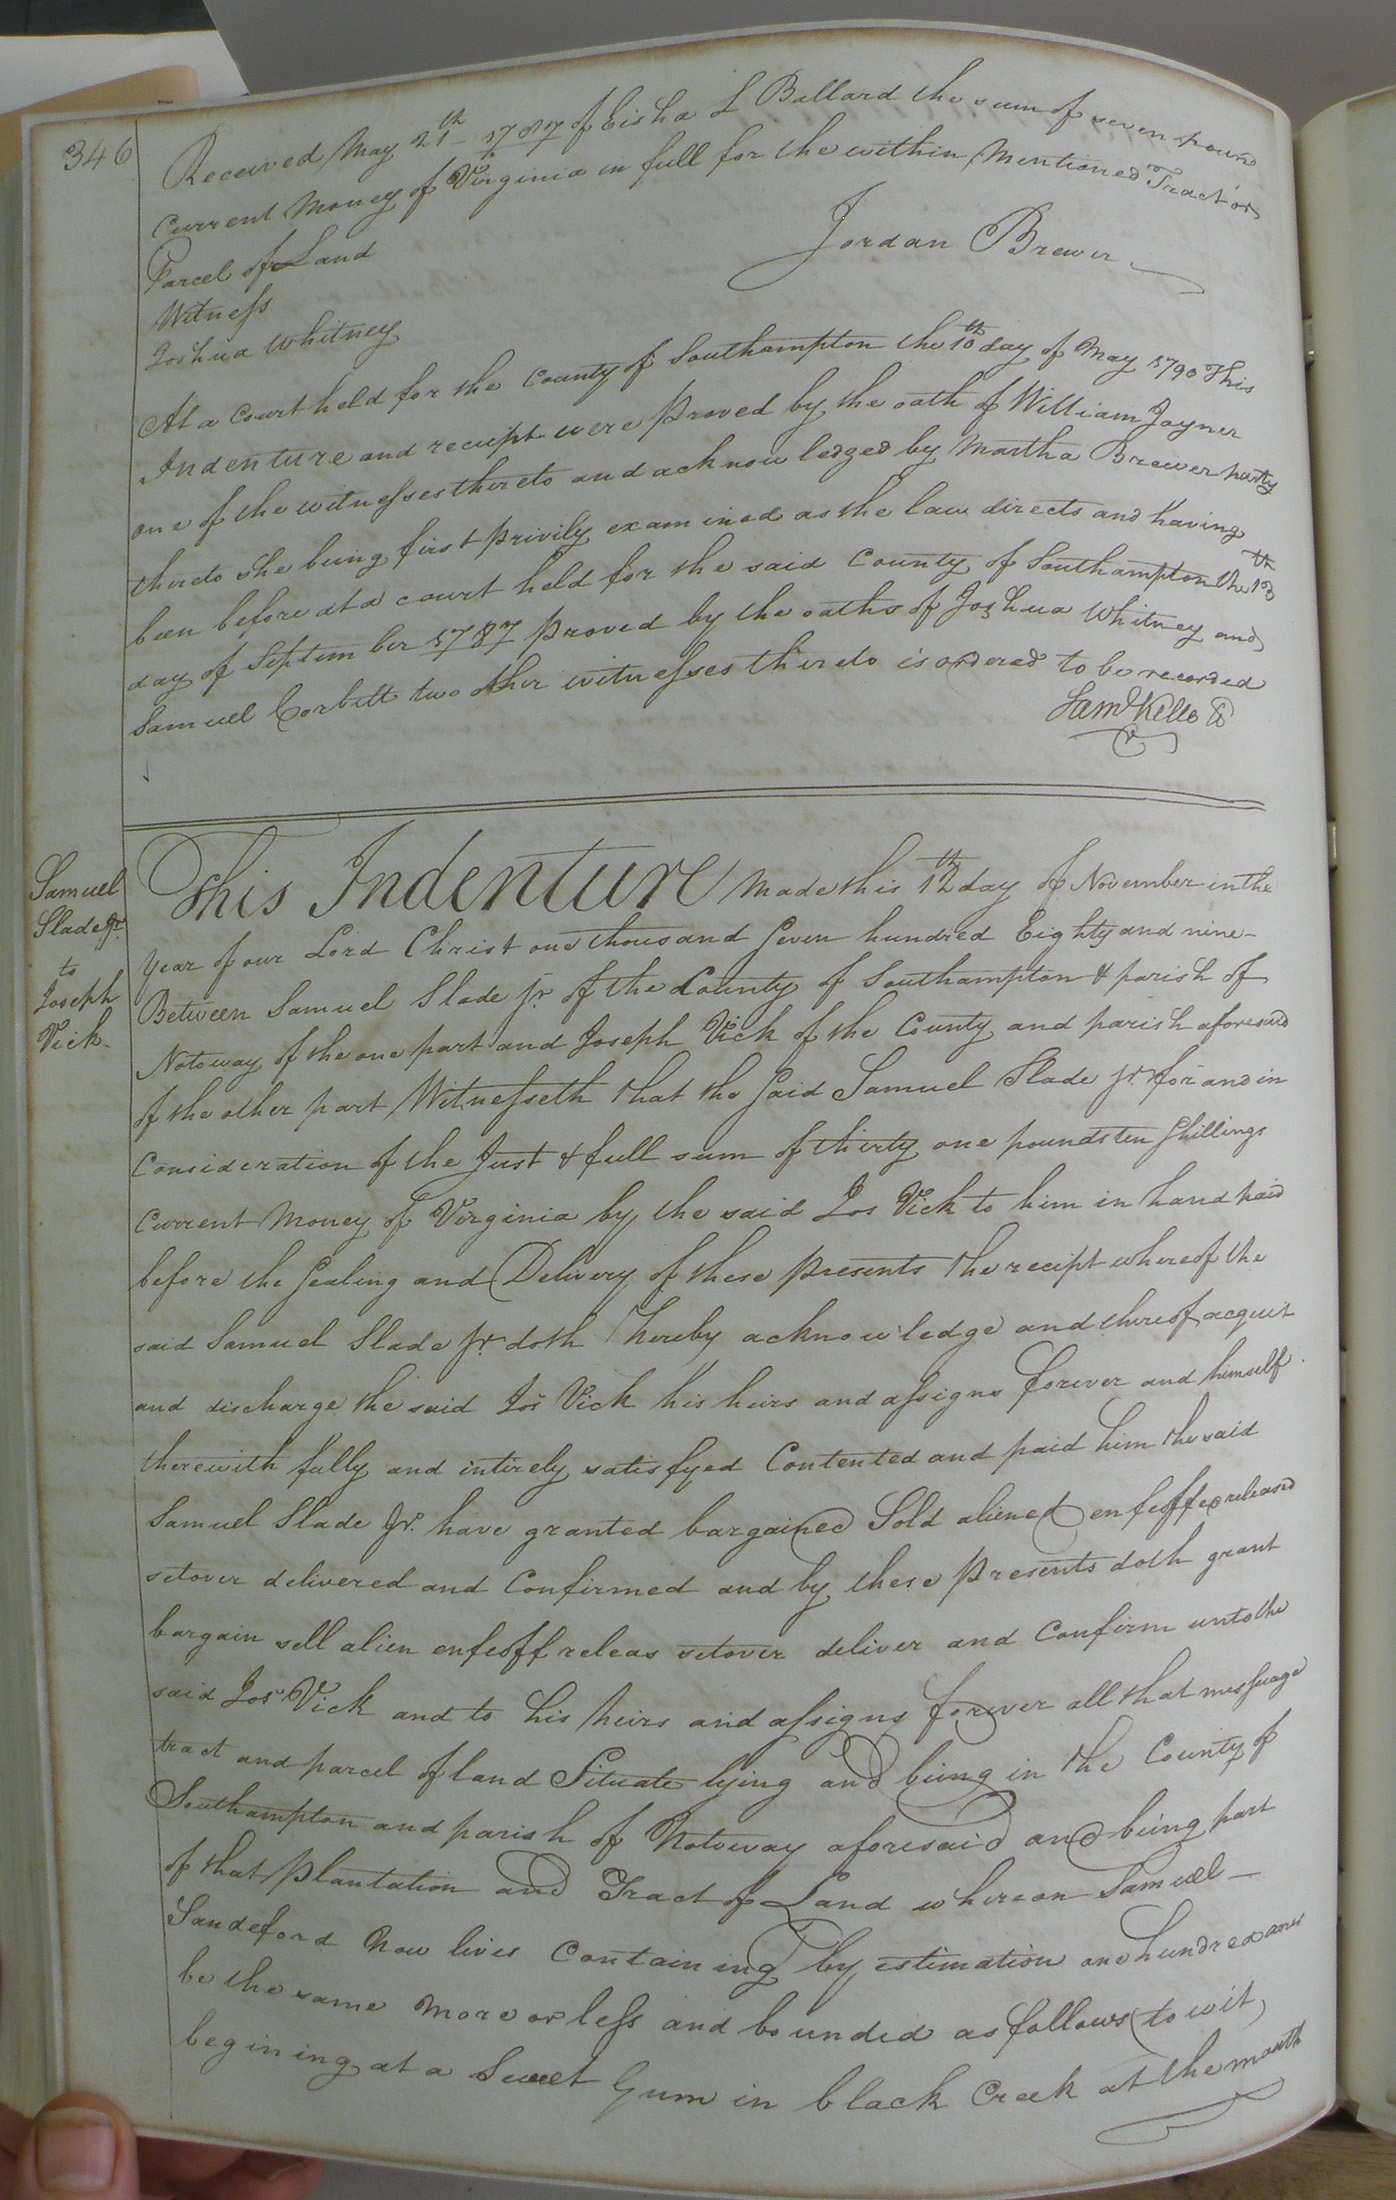 346
Received May 21th 1787 of Eisha L Ballard the sum of seven pound
Current Money of Virginia in full for the within Mentioned Tract or
Parcel of Land
Jordan Brewer
Witness
Joshua Whitney
At a Court held for the County of Southampton the 10th day of May 1790 This
Indenture and reciept were proved by the oath of William Joyner
one of the witnesses thereto and acknowledged by Martha Brewer party
thereto she being first privily examined as the law directs and having
been before at a court held for the said County of Southampton the 13th
day of September 1787 proved by the oaths of Joshua Whitney and
Samuel Corbitt two other witnesses thereto is ordered to be recorded
Saml Kello
Samuel
Slade Jr.
to
Joseph
Vick
This Indenture Made this 12th day of November in the
Year of our Lord Christ one thousand Seven hundred Eighty and nine
Between Samuel Slade Jr. of the County of Southampton & parish of
Notoway of the one part and Joseph Vick of the County and parish aforesaid
of the other part Witnesseth that the Said Samuel Slade Jr. for and in
Consideration of the Just & full sum of thirty one pounds ten Shillings
Current Money of Virginia by the said Jos Vick to him in hand paid
before the Sealing and Delivery of these presents the recipt whereof the
said Samuel Slade Jr. doth hereby acknowledge and thereof acquit
and discharge the said Jos Vick his heirs and assigns forever and himself
therewith fully and intirely satisfyed Contented and paid him the said
Samuel Slade Jr. have granted bargained Sold aliened enfeoffed released
setover delivered and Confirmed and by these presents doth grant
bargain sell alien enfeoff releas setover deliver and Confirm unto the
said Jos Vick and to his heirs and assigns forever all that messuage
tract and parcel of land Situate lying and being in the County of
Southampton and parish of Notoway aforesaid and being part
of that Plantation and Tract of Land whereon Samuel
Sandeford Now lives Containing by estimation one hundred acres
be the same More or less and bounded as follows to wit,
begining at a Sweet Gum in black Creek at the mouth